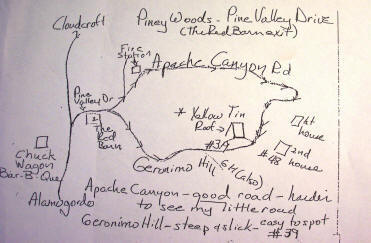 Cloudcroft
Piney Woods - Pine Valley Drive
(The Red Barn exit)
Fire
Station
Apache Canyon Rd
Pine
Valley Dr
The
Red
Barn
* Yellow Tin
Roof
#39
1st
house
2nd
house
#48
Chuck
Wagon
Bar-B-Que
Geronimo Hill
GH (also)
Alamogordo
Apache Canyon - good road - harder
to see my little road
Geronimo Hill - steep & slick - easy to spot
#39